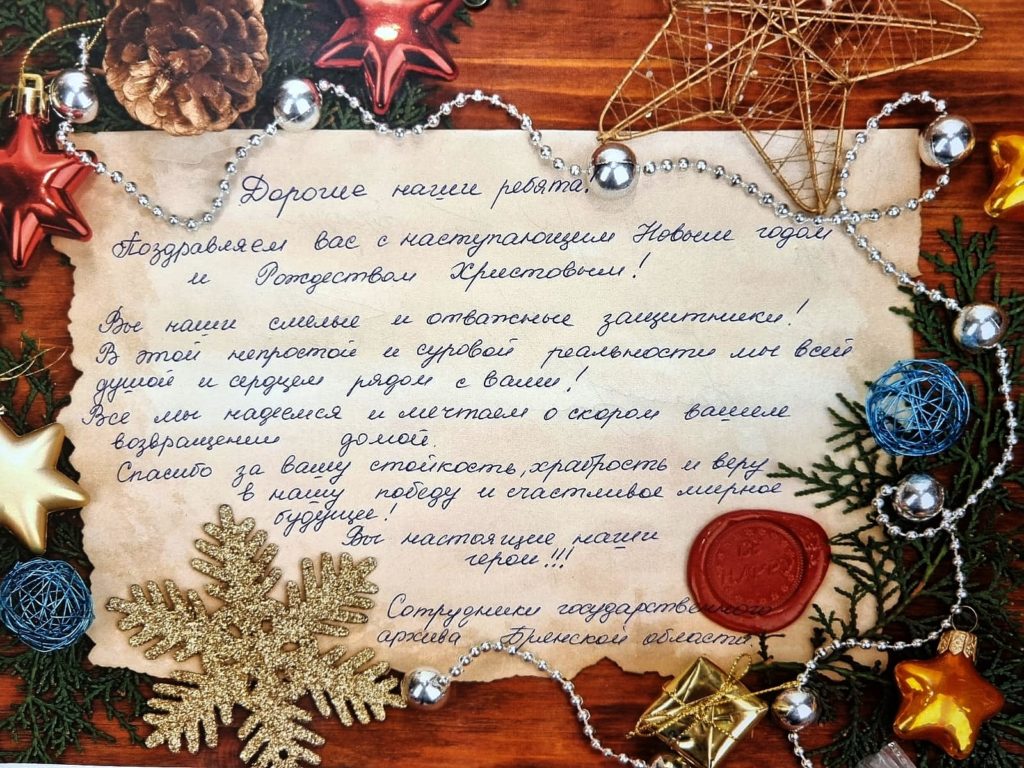 Дорогие наши ребята!
Поздравляем вас с наступающим Новым годом
и Рождеством Христовым!
Вы наши смелые и отважные защитники!
В этой непростой и суровой реальности мы всей
душой и сердцем рядом с вами!
Все мы надеемся и мечтаем о скором вашем
возвращении домой.
Спасибо за вашу стойкость, храбрость и веру
в нашу победу и счастливое мирное
будущее!
Вы настоящие наши
герои!!!
Сотрудники государственного
архива Брянской области.